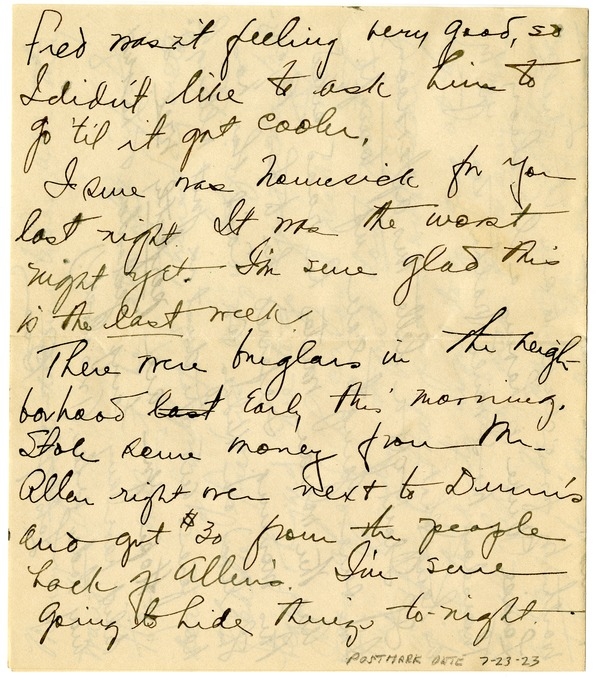 Fred wasn't feeling very good, so
I didn't like to ask him to
go 'til it got cooler.
I sure was homesick for you
last night. It was the worst
night yet. I'm sure glad this
is the last week.
There were burglars in the neigh-
borhood last Early this morning.
Stole some money from Mr.
Allen right over next to Dunn's
and got $30 from the people
back of Allen's. I'm sure
going to hide things to-night.
POSTMARK DATE 7-23-23